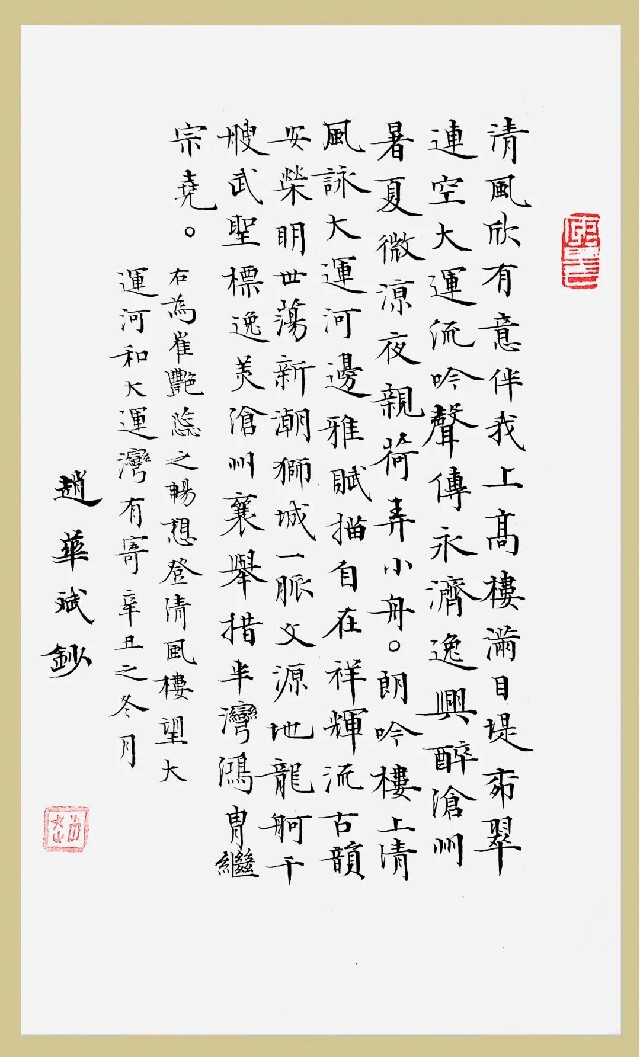 清風欣有意伴我上高樓滿目堤翠
連空大運流吟聲傳永濟逸興醉滄州
暑夏微涼夜親荷弄小舟。朗吟樓上清
風詠大運河邊雅賦描自在祥輝流古韻
安榮明世蕩新潮獅城一脈文源地龍舸千
艘武聖標逸美滄州襄舉措半灣鴻胄繼
宗堯。
右為崔艷蕊之暢想登清風樓望大
運河和大運灣有寄辛丑之冬月
趙華斌鈔